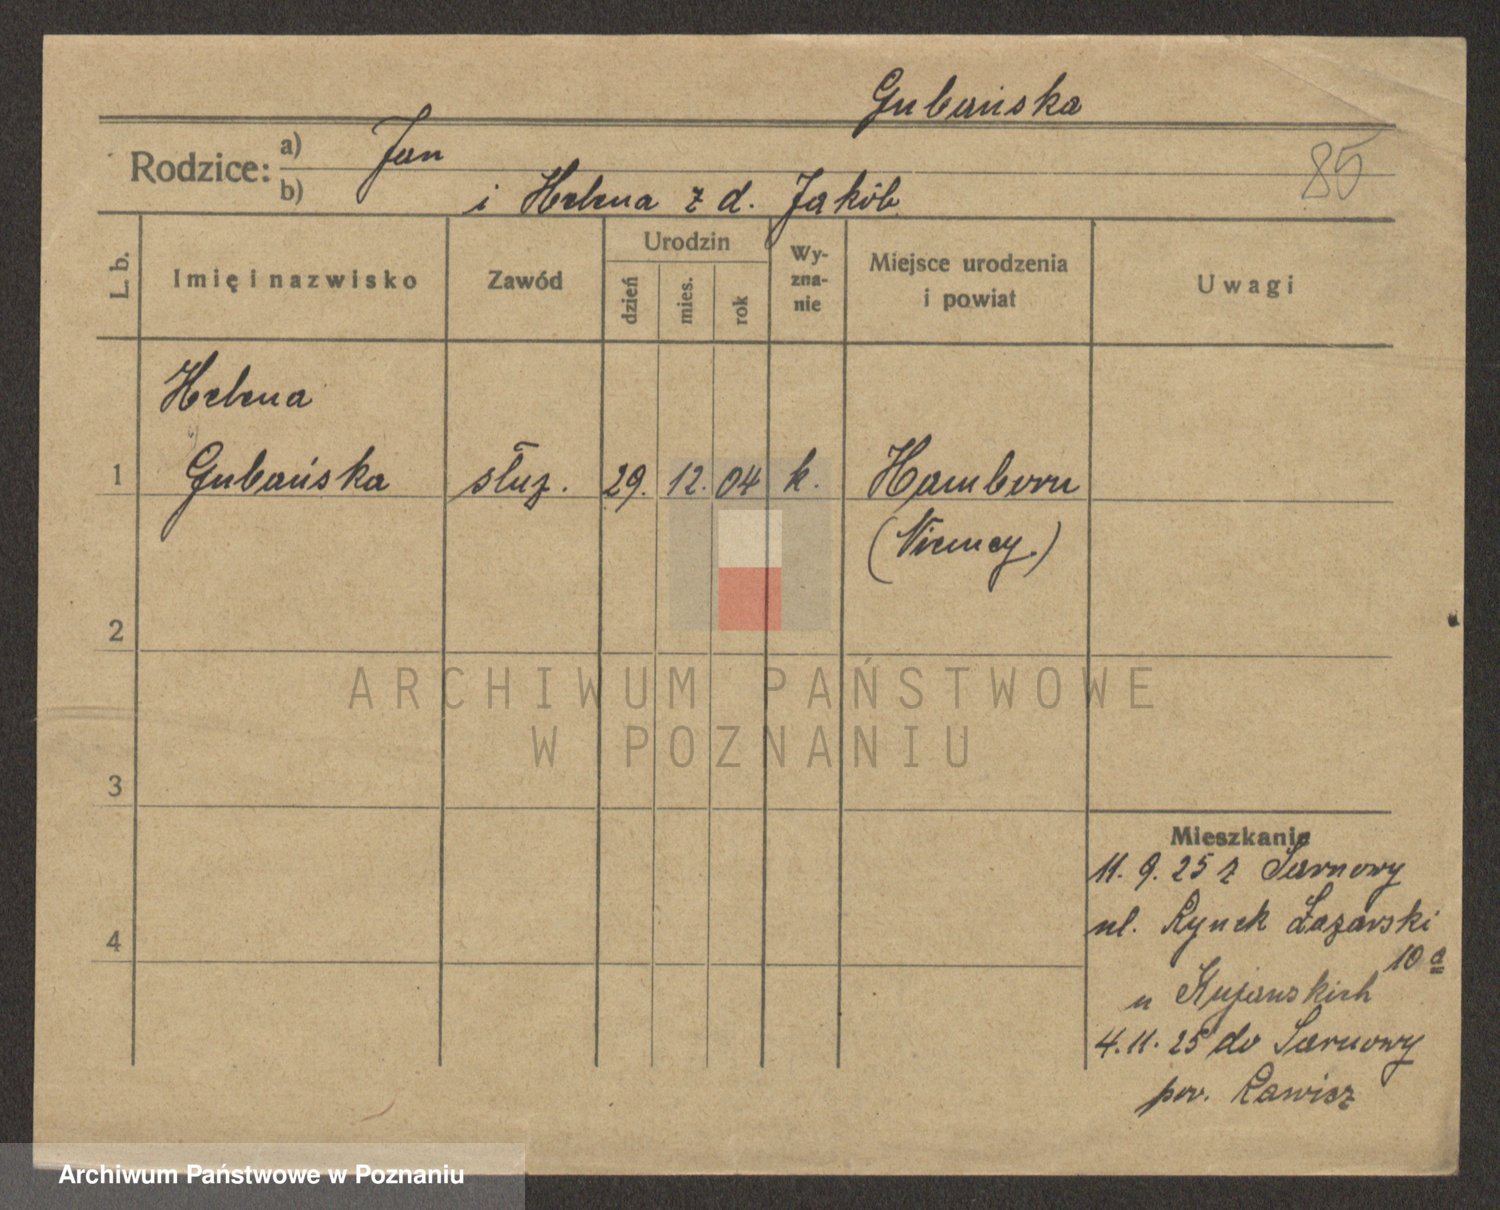 Gubańska
Rodzice: a) Jan
b) i Helena z d. Jakób
85
L. b. Imię i nazwisko Zawód Urodzin dzień mies. rok Wy-zna-nie Miejsce urodzenia i powiat Uwagi
Helena
1 Gubańska służ. 29. 12. 04 k. Hamborn
(Niemcy.)
2
ARCHIWUM PAŃSTWOWE
W POZNANIU
3
Mieszkanie
11. 9. 25 z Sarnowy
ul. Rynek Łazarski
10a
4
u Kujawskich
4. 11. 25 do Sarnowy
pow. Rawicz
Archiwum Państwowe w Poznaniu